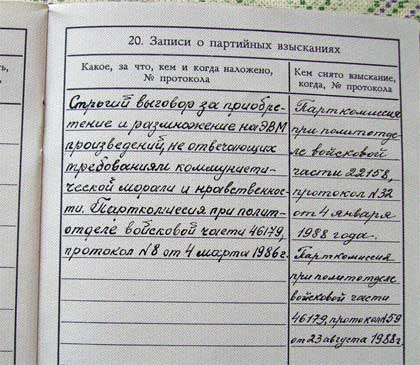 20. Записи о партийных взысканиях
Какое, за что, кем и когда наложено,
№ протокола
Строгий выговор за приобре-
тение и размножение на ЭВМ
произведений, не отвечающих
требованиям коммунисти-
ческой морали и нравственнос-
ти. Парткомиссия при полит-
отделе войсковой части 46179,
протокол №8 от 4 марта 1986г.
Кем снято взыскание,
когда, № протокола
Парткомиссия
при политотде-
ле войсковой
части 22158,
протокол №32
от 4 января
1988 года.
Парткомиссия
при политотделе
войсковой части
46179, протокол №59
от 23 августа 1988г.